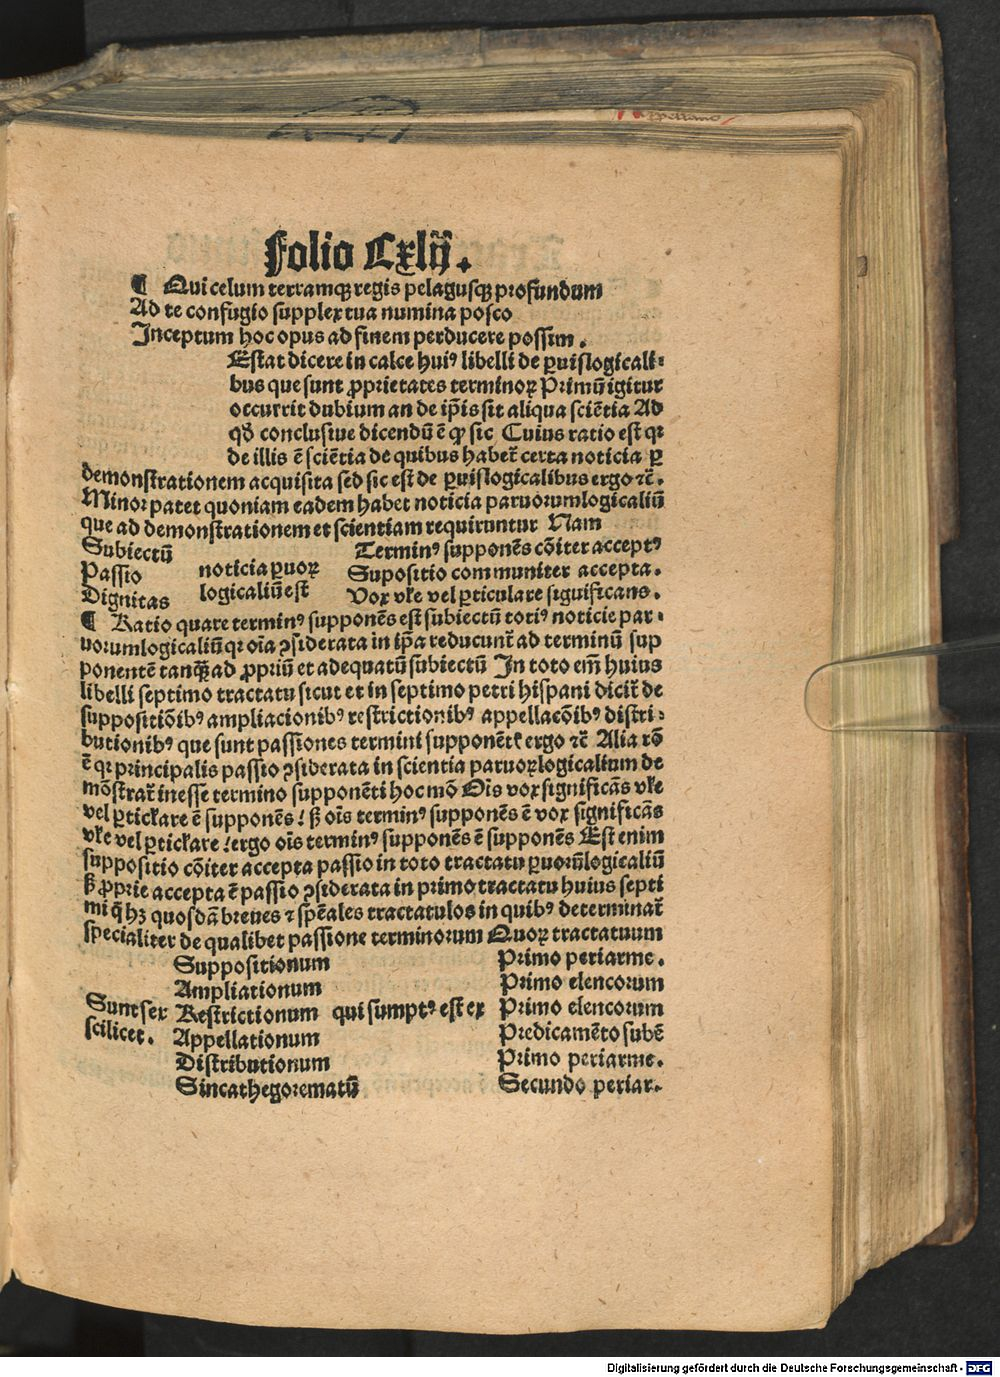 Folio Cxlij.
¶ Qui celum terramqȝ regis pelagusqȝ profundum
Ad te confugio supplex tua numina posco
Inceptum hoc opus ad finem perducere possim.
Estat dicere in calce huiꝰ libelli de ꝑuislogicali⸗
bus que sunt ꝓprietates terminoꝝ Primū igitur
occurrit dubium an de ip̄is sit aliqua sciētia Ad
qd̄ conclusiue dicendū ē ꝙ sic Cuius ratio est qꝛ
de illis ē sciētia de quibus haber̄ certa noticia ꝑ
demonstrationem acquisita sed sic est de ꝑuislogicalibus ergo ⁊c̄.
Minor patet quoniam eadem habet noticia paruorumlogicaliū
que ad demonstrationem et scientiam requiruntur Nam
Subiectū Terminꝰ supponēs cōiter acceptꝰ
Passio noticia ꝑuoꝝ Supositio communiter accepta.
Dignitas logicaliū est Vox vl̄e vel ꝑticulare significans.
¶ Ratio quare terminꝰ supponēs est subiectū totiꝰ noticie par⸗
uorumlogicaliū qꝛ oīa ꝯsiderata in ip̄a reducunt̄ ad terminū sup
ponentē tanqȝ̄ ad ꝓpriū et adequatū subiectū In toto em̄ huius
libelli septimo tractatu sicut et in septimo petri hispani dicit̄ de
suppositiōibꝰ ampliacionibꝰ restrictionibꝰ appellacōibꝰ distri⸗
butionibꝰ que sunt passiones termini supponētꝭ ergo ⁊c̄ Alia rō
ē qꝛ principalis passio ꝯsiderata in scientia paruoꝝlogicalium de
mōstrat̄ inesse termino supponēti hoc mō Oīs vox significās vl̄e
vel ꝑticl̄are ē supponēs! sꝫ oīs terminꝰ supponēs ē vox significās
vl̄e vel ꝑticl̄are! ergo oīs terminꝰ supponēs ē supponēs Est enim
suppositio cōiter accepta passio in toto tractatu ꝑuorūlogicaliū
sꝫ ꝓprie accepta ē passio ꝯsiderata in primo tractatu huius septi
mi q̄ hꝫ quosdā breues ⁊ spēales tractatulos in quibꝰ determinat̄
specialiter de qualibet passione terminorum Quoꝝ tractatuum
Suppositionum Primo periarme.
Ampliationum Primo elencorum
Sunt sex Restrictionum qui sumptꝰ est ex Primo elencorum
scilicet. Appellationum Predicamēto subē
Distributionum Primo periarme.
Sincathegorematū Secundo periar.
Digitalisierung gefördert durch die Deutsche Forschungsgemeinschaft - DFG